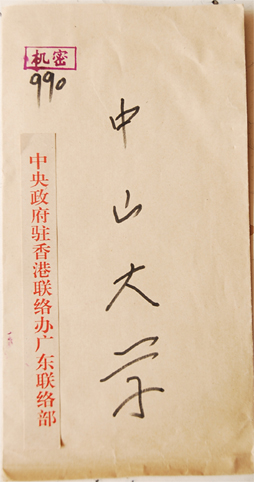 机密
990
中山大学
中央政府驻香港联络办广东联络部